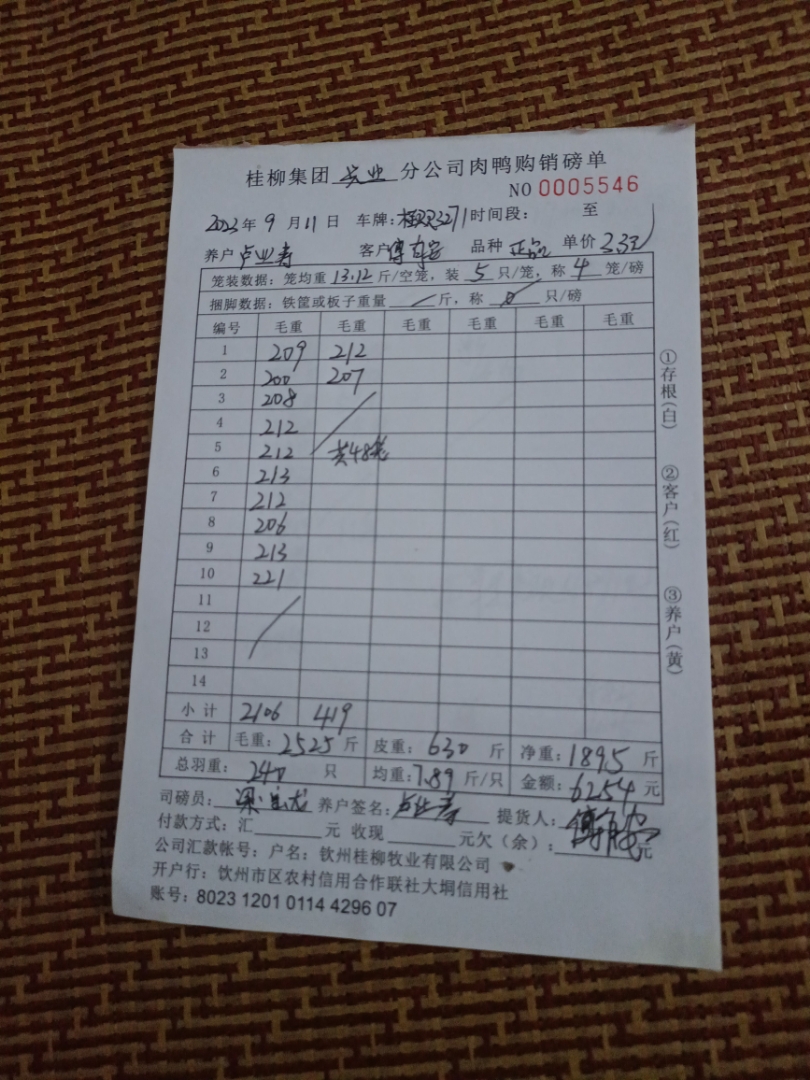 桂柳集团 实业 分公司肉鸭购销磅单
NO 0005546
2023年 9 月 11 日 车牌: 3271 时间段: 至
养户 卢业寿 客户 品种 正品 单价 3.3元
笼装数据: 笼均重 13.12 斤/空笼, 装 5 只/笼, 称 4 笼/磅
捆脚数据: 铁筐或板子重量 斤, 称 只/磅
编号 毛重 毛重 毛重 毛重 毛重 毛重
1 209 212
2 200 207
3 208
4 212
5 212 共48笼
6 213
7 212
8 206
9 213
10 221
11
12
13
14
小计 2106 419
合计 毛重: 2525 斤 皮重: 630 斤 净重: 1895 斤
总羽重: 240 只 均重: 7.89 斤/只 金额: 6254 元
司磅员: 养户签名: 卢业寿 提货人:
付款方式: 汇 元 收现 元欠(余): 元
公司汇款帐号: 户名: 钦州桂柳牧业有限公司
开户行: 钦州市区农村信用合作联社大垌信用社
账号: 8023 1201 0114 4296 07
①存根(白)
②客户(红)
③养户(黄)